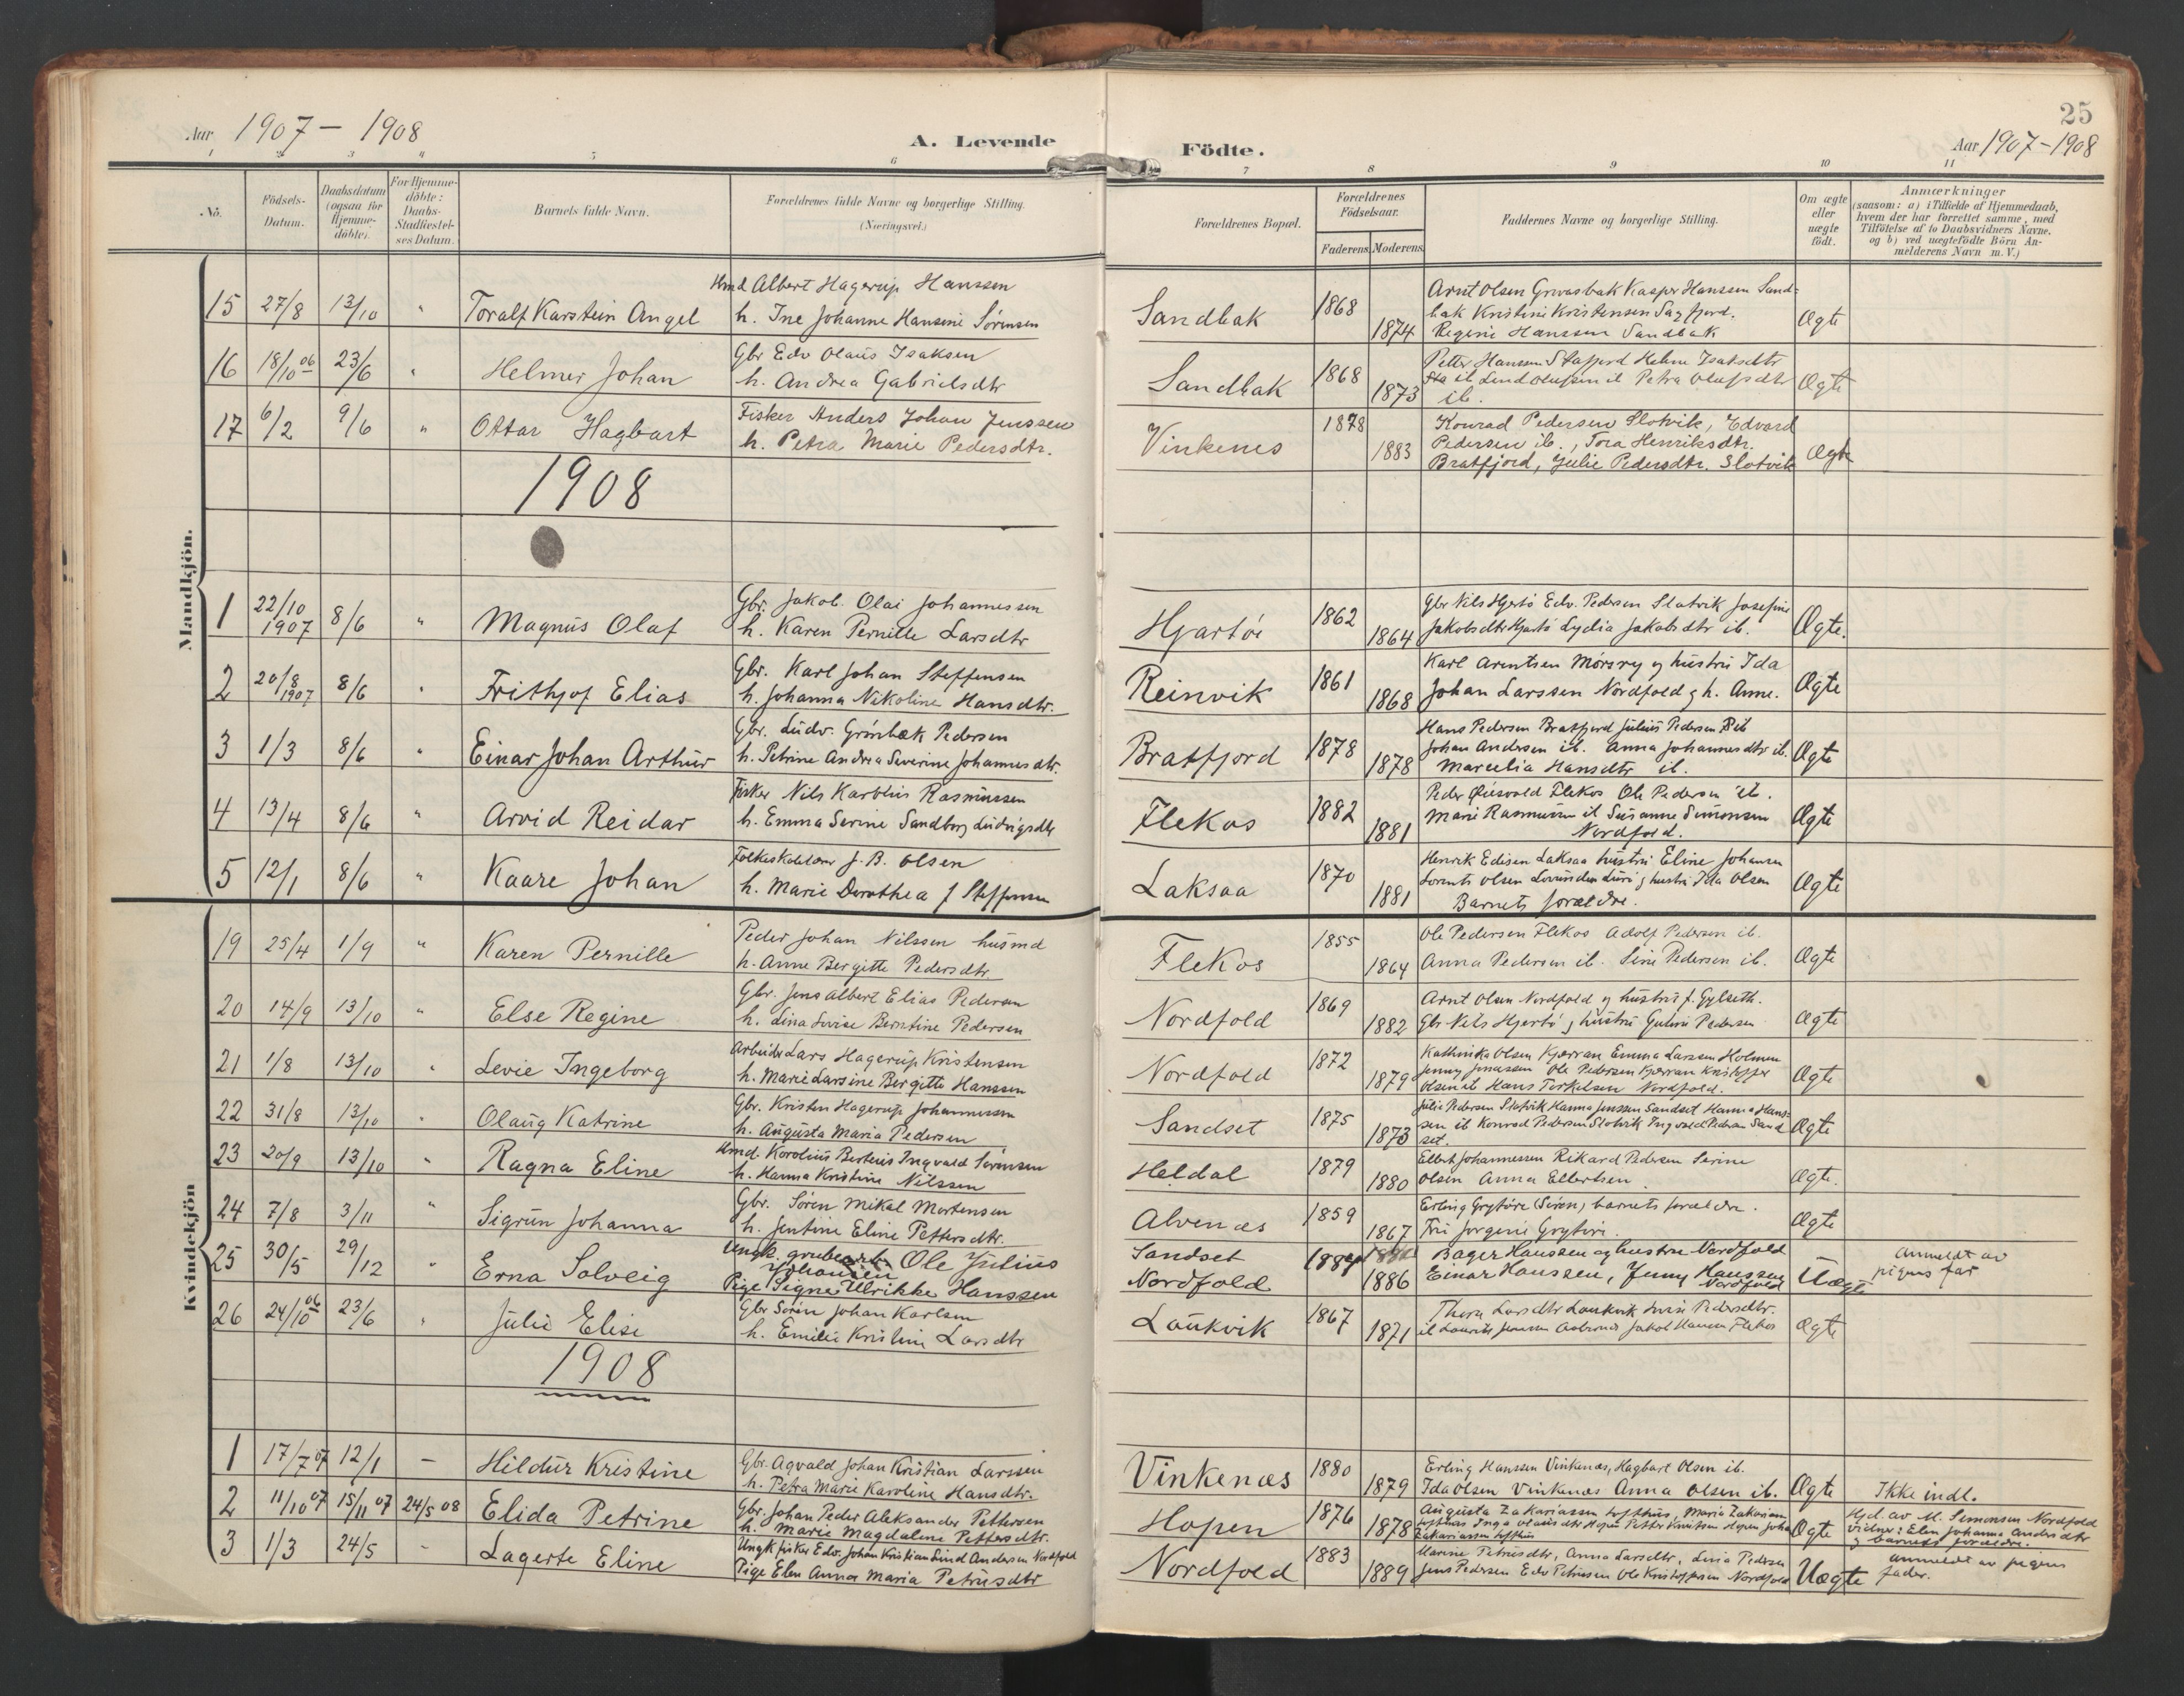 25
Aar 1907 – 1908
A. Levende
Födte.
Aar 1907-1908
1 2 3 4 5 6 7 8 9 10 11
No.
Födsels-Datum.
Daabsdatum (ogsaa for Hjemme-döbte).
For Hjemme-döbte: Daabs-Stadfæstel-ses Datum.
Barnets fulde Navn.
Forældrenes fulde Navne og borgerlige Stilling. (Næringsvei.)
Forældrenes Bopæl.
Forældrenes Födselsaar.
Faderens Moderens
Faddernes Navne og borgerlige Stilling.
Om ægte eller uægte födt.
Anmærkninger (saasom: a) i Tilfælde af Hjemmedaab, hvem der har forrettet samme, med Tilföielse af to Daabsvidners Navne, og b) ved uægtefödte Börn An-melderens Navn m. V.)
Mandkjön.
15 27/8 13/10 " Toralf Karstein Angel
Hmd Albert Hagerup Hanssen
h. Ine Johanne Hansine Sørensen
Sandbak 1868 1874
Arnt Olsen Kasper Hanssen Sand-
bak Kristine Kristensen Sagfjord.
Regine Hanssen Sandbak
Ægte
16 18/10 06 23/6 " Helmer Johan
Gbr Edv Olaus Isaksen
h. Andrea Gabrielsdtr
Sandbak 1868 1873
Petter Hanssen Isaksdtr
ib Petra Olufsdtr
ib.
Ægte
17 6/2 9/6 " Ottar Hagbart
Fisker Anders Johan Jenssen
h. Petra Marie Pedersdtr.
Vinkenes 1878 1883
Konrad Pedersen Slotvik, Edvard
Pedersen ib., Tora Henriksdtr.
Bratfjord, Julie Pedersdtr. Slotvik
Ægte
1908
1 22/10 1907 8/6 " Magnus Olaf
Gbr. Jakob Olai Johannessen
h. Karen Pernille Larsdtr
Hjartöi 1862 1864
Gbr Nils Hjertö Edv. Pedersen Slotvik Josefine
Jakobsdtr Hjartö Lydia Jakobsdtr ib.
Ægte.
2 20/8 1907 8/6 " Frithjof Elias
Gbr. Karl Johan Steffensen
h. Johanna Nikoline Hansdtr.
Reinvik 1861 1868
Karl Arentsen Mørsry og hustru Ida
Johan Larssen Nordfold og h. Anne.
Ægte
3 1/3 8/6 " Einar Johan Arthur
Gbr. Ludv. Grönbæk Pedersen
h. Petrine Andrea Severine Johannesdtr.
Bratfjord 1878 1878
Hans Pedersen Bratfjord Julius Pedersen ib
Johan Andersen ib. Anna Johannesdtr ib.
Marselia Hansdtr ib.
Ægte
4 13/4 8/6 " Arvid Reidar
Fisker Nils Karolius Rasmussen
h. Emma Serine Sandborg Ludvigsdtr
Flekos 1882 1881
Peder Flekos Ole Pedersen ib.
Marie Rasmussen ib Susanne Simonsen
Nordfold.
Ægte
5 12/1 8/6 " Kaare Johan
Folkeskolelærer J. B. Olsen
h. Marie Dorothea f Steffensen
Laksaa 1870 1881
Henrik Edisen Laksaa hustru Eline Johansen
Lorents Olsen hustru Ida Olsen
Barnets forældre.
Ægte
Kvindekjön
19 25/4 1/9 " Karen Pernille
Peder Johan Nilssen husmd
h. Anne Bergitte Pedersdtr
Flekos 1855 1864
Ole Pedersen Flekos Adolf Pedersen ib.
Anna Pedersen ib. Sine Pedersen ib.
Ægte
20 14/9 13/10 " Else Regine
Gbr. Jens Albert Elias Pedersen
h. Lina Lovise Berntine Pedersen
Nordfold 1869 1882
Arnt Olsen Nordfold og hustru f. Gylseth.
Gbr Nils Hjertö og hustru Pedersen
Ægte
21 1/8 13/10 " Levie Ingeborg
Arbeider Lars Hagerup Kristensen
h. Marie Larsine Bergitte Hanssen
Nordfold 1872 1879
Kathinka Olsen Kjerran Emma Larssen Holmen
Jenny Jonassen Ole Pedersen Kjerran Kristoffer
Olsen ib Hans Torkelsen Nordfold.
Ægte
22 31/8 13/10 " Olaug Katrine
Gbr. Kristen Hagerup Johannessen
h. Augusta Maria Pedersen
Sandset 1875 1873
Julie Pedersen Slotvik Hanna Jenssen Sandset Hanna Hans-
sen ib Konrad Pedersen Slotvik Ingvald Pedersen Sand
set.
Ægte
23 20/9 13/10 " Ragna Eline
Hmd. Korolius Berteus Ingvald Sørensen
h. Hanna Kristine Nilssen
Heldal 1879 1880
Ellert Johannessen Rikard Pedersen Serine
Olsen Anna Ellertsen
Ægte.
24 7/8 3/11 " Sigrun Johanna
Gbr. Sören Mikal Mortensen
h. Jentine Eline Pettersdtr.
Alvenæs 1859 1867
Erling Grytöre (Sören) barnets forældre.
Fru Jorgine Grytöre.
Ægte
25 30/5 29/12 " Erna Solveig
Ungk. grubearb. Ole Julius
Johansen
Pige Signe Ulrikke Hanssen
Sandset
Nordfold 1884 1886
Bager Hanssen og hustru Nordfold
Einar Hanssen, Jenny Hanssen
Nordfold
Uægte
Anmeldt av
pigens far
26 24/10 06 23/6 " Julie Elise
Gbr Sörin Johan Karlsen
h. Emilie Kristine Larsdtr
Laukvik 1867 1871
Thora Larsdtr Laukvik Pedersdtr.
ib Laurits Jenssen Jakob Hansen Flekos
Ægte
1908
1 17/7 07 12/1 – Hildur Kristine
Gbr. Agvald Johan Kristian Larssen
h. Petra Marie Karoline Hansdtr.
Vinkenæs 1880 1879
Erling Hanssen Vinkenæs, Hagbart Olsen ib.
Ida Olsen Vinkenæs Anna Olsen ib.
Ægte
Ikke indl.
2 11/10 07 15/11 07 24/5 08 Elida Petrine
Gbr. Johan Peder Aleksander Pettersen
h. Marie Magdalene Pettersdtr.
Hopen 1876 1878
Augusta Zakariassen Tofthus, Maria Zakariassen
Tofthus Inga Olausdtr Hopen Petter Knutsen Hopen Johan
Zakariassen Tofthus
Ægte
Hjd. av M. Simonsen Nordfold
Vidner: Elen Johanna Andersdtr
og barnets forældre.
3 1/3 24/5 – Lagerte Eline
Ungk fisker Edv. Johan Kristian Lind Andersen Nordfold
Pige Elen Anna Maria Petrusdtr
Nordfold 1883 1889
Marine Petrusdtr, Anna Larsdtr, Lina Pedersen
Jens Pedersen Edv Petrusen Ole Kristoffersen Nordfold
Uægte
anmeldt av pigens
fader.